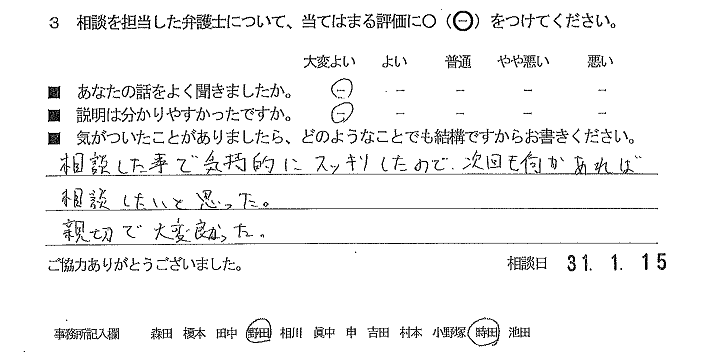 3 相談を担当した弁護士について、当てはまる評価に○（⊖）をつけてください。
大変よい よい 普通 やや悪い 悪い
■ あなたの話をよく聞きましたか。 － － － － －
■ 説明は分かりやすかったですか。 － － － － －
■ 気がついたことがありましたら、どのようなことでも結構ですからお書きください。
相談した事で気持的にスッキリしたので、次回も何かあれば
相談したいと思った。
親切で大変良かった。
ご協力ありがとうございました。 相談日 31. 1. 15
事務所記入欄 森田 榎本 田中 野田 相川 眞中 申 吉田 村本 小野塚 時田 池田